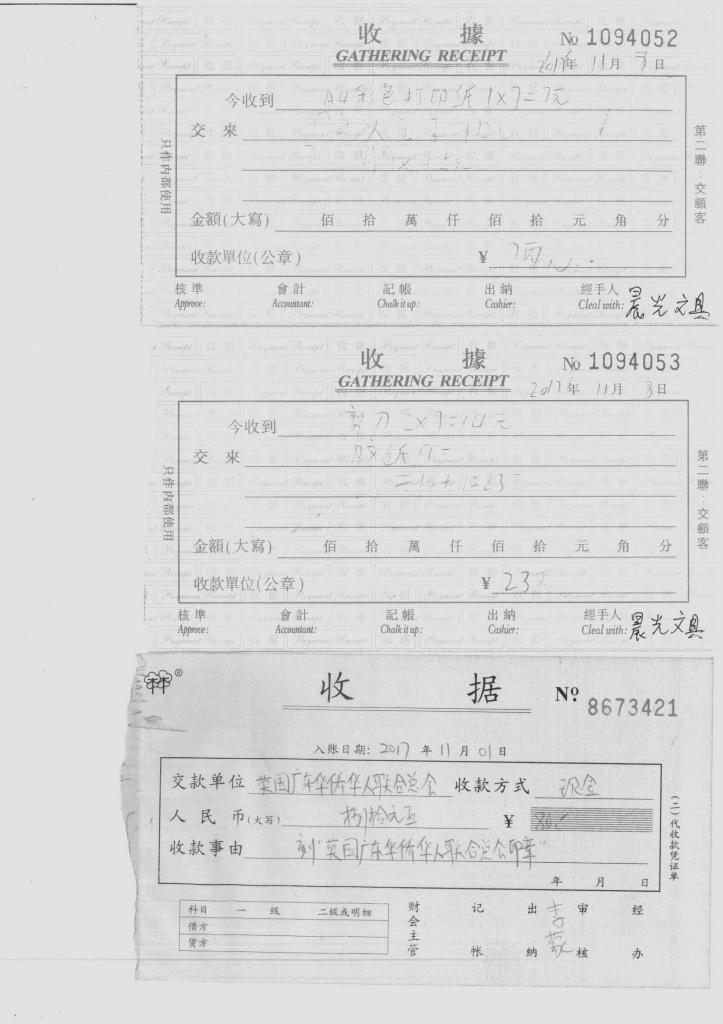 收 據
GATHERING RECEIPT
No 1094052
2017年 11月 3日
今收到 A4彩色打印纸 1×7=7元
交 來
金額(大寫) 佰 拾 萬 仟 佰 拾 元 角 分
收款單位(公章) ¥
核準 會計 記帳 出納 經手人
Approve: Accountant: Chalk it up: Cashier: Cleal with: 晨光文具
只作内部使用
第二聯：交顧客
收 據
GATHERING RECEIPT
No 1094053
2017年 11月 3日
今收到 剪刀 2×7=14元
交 來 胶纸
金額(大寫) 佰 拾 萬 仟 佰 拾 元 角 分
收款單位(公章) ¥ 23
核準 會計 記帳 出納 經手人
Approve: Accountant: Chalk it up: Cashier: Cleal with: 晨光文具
只作内部使用
第二聯：交顧客
收 据
№ 8673421
入账日期: 2017 年 11 月 01 日
交款单位 英国广东华侨华人联合总会 收款方式 现金
人民币(大写) 捌拾元正 ¥ 80
收款事由 刻"英国广东华侨华人联合总会印章"
年 月 日
(二)代收款凭证单
科目 一 级 二级或明细
借方
贷方
财会主管 记帐 出纳 审核 经办